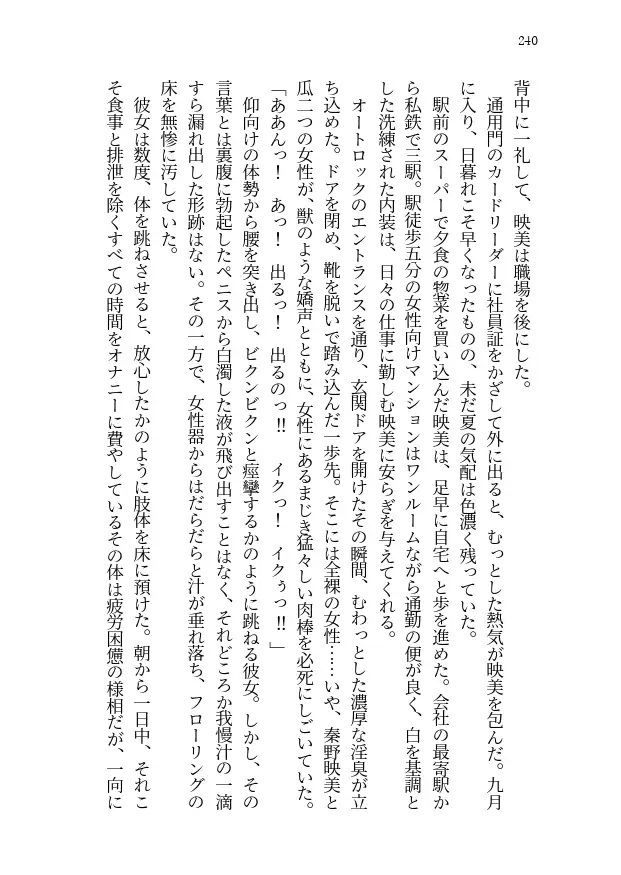 240
背中に一礼して、映美は職場を後にした。
　通用門のカードリーダーに社員証をかざして外に出ると、むっとした熱気が映美を包んだ。九月
に入り、日暮れこそ早くなったものの、未だ夏の気配は色濃く残っていた。
　駅前のスーパーで夕食の惣菜を買い込んだ映美は、足早に自宅へと歩を進めた。会社の最寄駅か
ら私鉄で三駅。駅徒歩五分の女性向けマンションはワンルームながら通勤の便が良く、白を基調と
した洗練された内装は、日々の仕事に勤しむ映美に安らぎを与えてくれる。
　オートロックのエントランスを通り、玄関ドアを開けたその瞬間、むわっとした濃厚な淫臭が立
ち込めた。ドアを閉め、靴を脱いで踏み込んだ一歩先。そこには全裸の女性……いや、秦野映美と
瓜二つの女性が、獣のような嬌声とともに、女性にあるまじき猛々しい肉棒を必死にしごいていた。
「ああんっ！　あっ！　出るっ！　出るのっ‼　イクっ！　イクぅっ‼」
　仰向けの体勢から腰を突き出し、ビクンビクンと痙攣するかのように跳ねる彼女。しかし、その
言葉とは裏腹に勃起したペニスから白濁した液が飛び出すことはなく、それどころか我慢汁の一滴
すら漏れ出した形跡はない。その一方で、女性器からはだらだらと汁が垂れ落ち、フローリングの
床を無惨に汚していた。
　彼女は数度、体を跳ねさせると、放心したかのように肢体を床に預けた。朝から一日中、それこ
そ食事と排泄を除くすべての時間をオナニーに費やしているその体は疲労困憊の様相だが、一向に